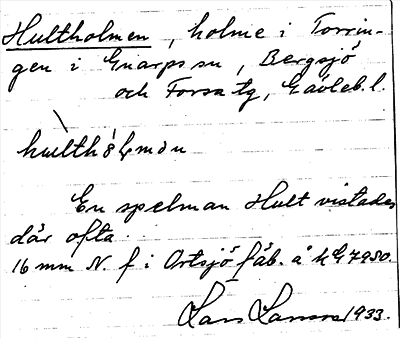 Hultholmen, holme i Torrin-
gen i Gnarps sn, Bergsjö
och Forsa tg, Gävleb. l.
En spelman Hult vistades
där ofta.
16 mm N. f i Ortsjö fäb. å kG 7950.
Lars 1933.